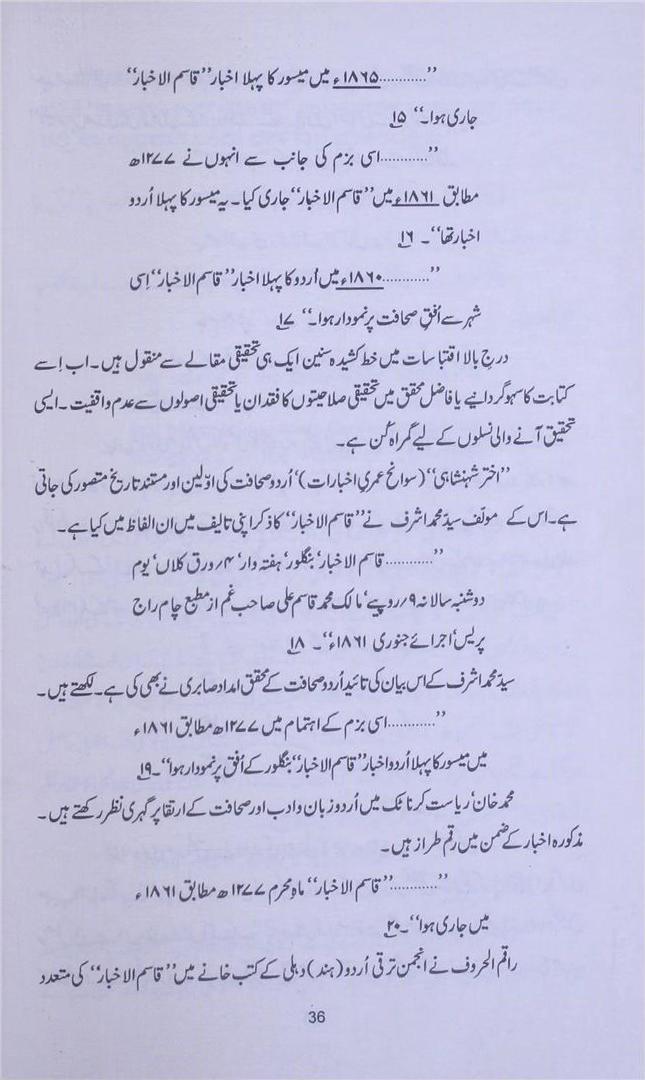 ”............۱۸۶۵ء میں میسور کا پہلا اخبار ”قاسم الاخبار“
جاری ہوا۔“ ۱۵
”............اسی بزم کی جانب سے انہوں نے ۱۲۷۷ھ
مطابق ۱۸۶۱ء میں ”قاسم الاخبار“ جاری کیا۔ یہ میسور کا پہلا اُردو
اخبار تھا“۔ ۱۶
”............۱۸۶۰ء میں اُردو کا پہلا اخبار ”قاسم الاخبار“ اِسی
شہر سے اُفقِ صحافت پر نمودار ہوا۔“ ۱۷
درج بالا اقتباسات میں خط کشیدہ سنین ایک ہی تحقیقی مقالے سے منقول ہیں۔ اب اِسے
کتابت کا سہو گردانیے یا فاضل محقق میں تحقیقی صلاحیتوں کا فقدان یا تحقیقی اصولوں سے عدم واقفیت۔ ایسی
تحقیق آنے والی نسلوں کے لیے گمراہ کُن ہے۔
”اختر شہنشاہی“ (سوانح عمری اخبارات)، اُردو صحافت کی اوّلین اور مستند تاریخ متصور کی جاتی
ہے۔ اس کے مولّف سیّد محمد اشرف نے ”قاسم الاخبار“ کا ذکر اپنی تالیف میں ان الفاظ میں کیا ہے۔
”............قاسم الاخبار، بنگلور، ہفتہ وار، ۴/ورق کلاں، یوم
دوشنبہ سالانہ ۹/روپیے، مالک محمد قاسم علی صاحب غم از مطبع چام راج
پریس، اجرائے جنوری ۱۸۶۱ء“۔ ۱۸
سیّد محمد اشرف کے اس بیان کی تائید اُردو صحافت کے محقق امداد صابری نے بھی کی ہے۔ لکھتے ہیں۔
”............اسی بزم کے اہتمام میں ۱۲۷۷ھ مطابق ۱۸۶۱ء
میں میسور کا پہلا اُردو اخبار ”قاسم الاخبار“ بنگلور کے اُفق پر نمودار ہوا“۔ ۱۹
محمد خان، ریاست کرناٹک میں اُردو زبان و ادب اور صحافت کے ارتقا پر گہری نظر رکھتے ہیں۔
مذکورہ اخبار کے ضمن میں رقم طراز ہیں۔
”............”قاسم الاخبار“ ماہِ محرم ۱۲۷۷ھ مطابق ۱۸۶۱ء
میں جاری ہوا“۔ ۲۰
راقم الحروف نے انجمن ترقی اُردو (ہند) دہلی کے کتب خانے میں ”قاسم الاخبار“ کی متعدد
36